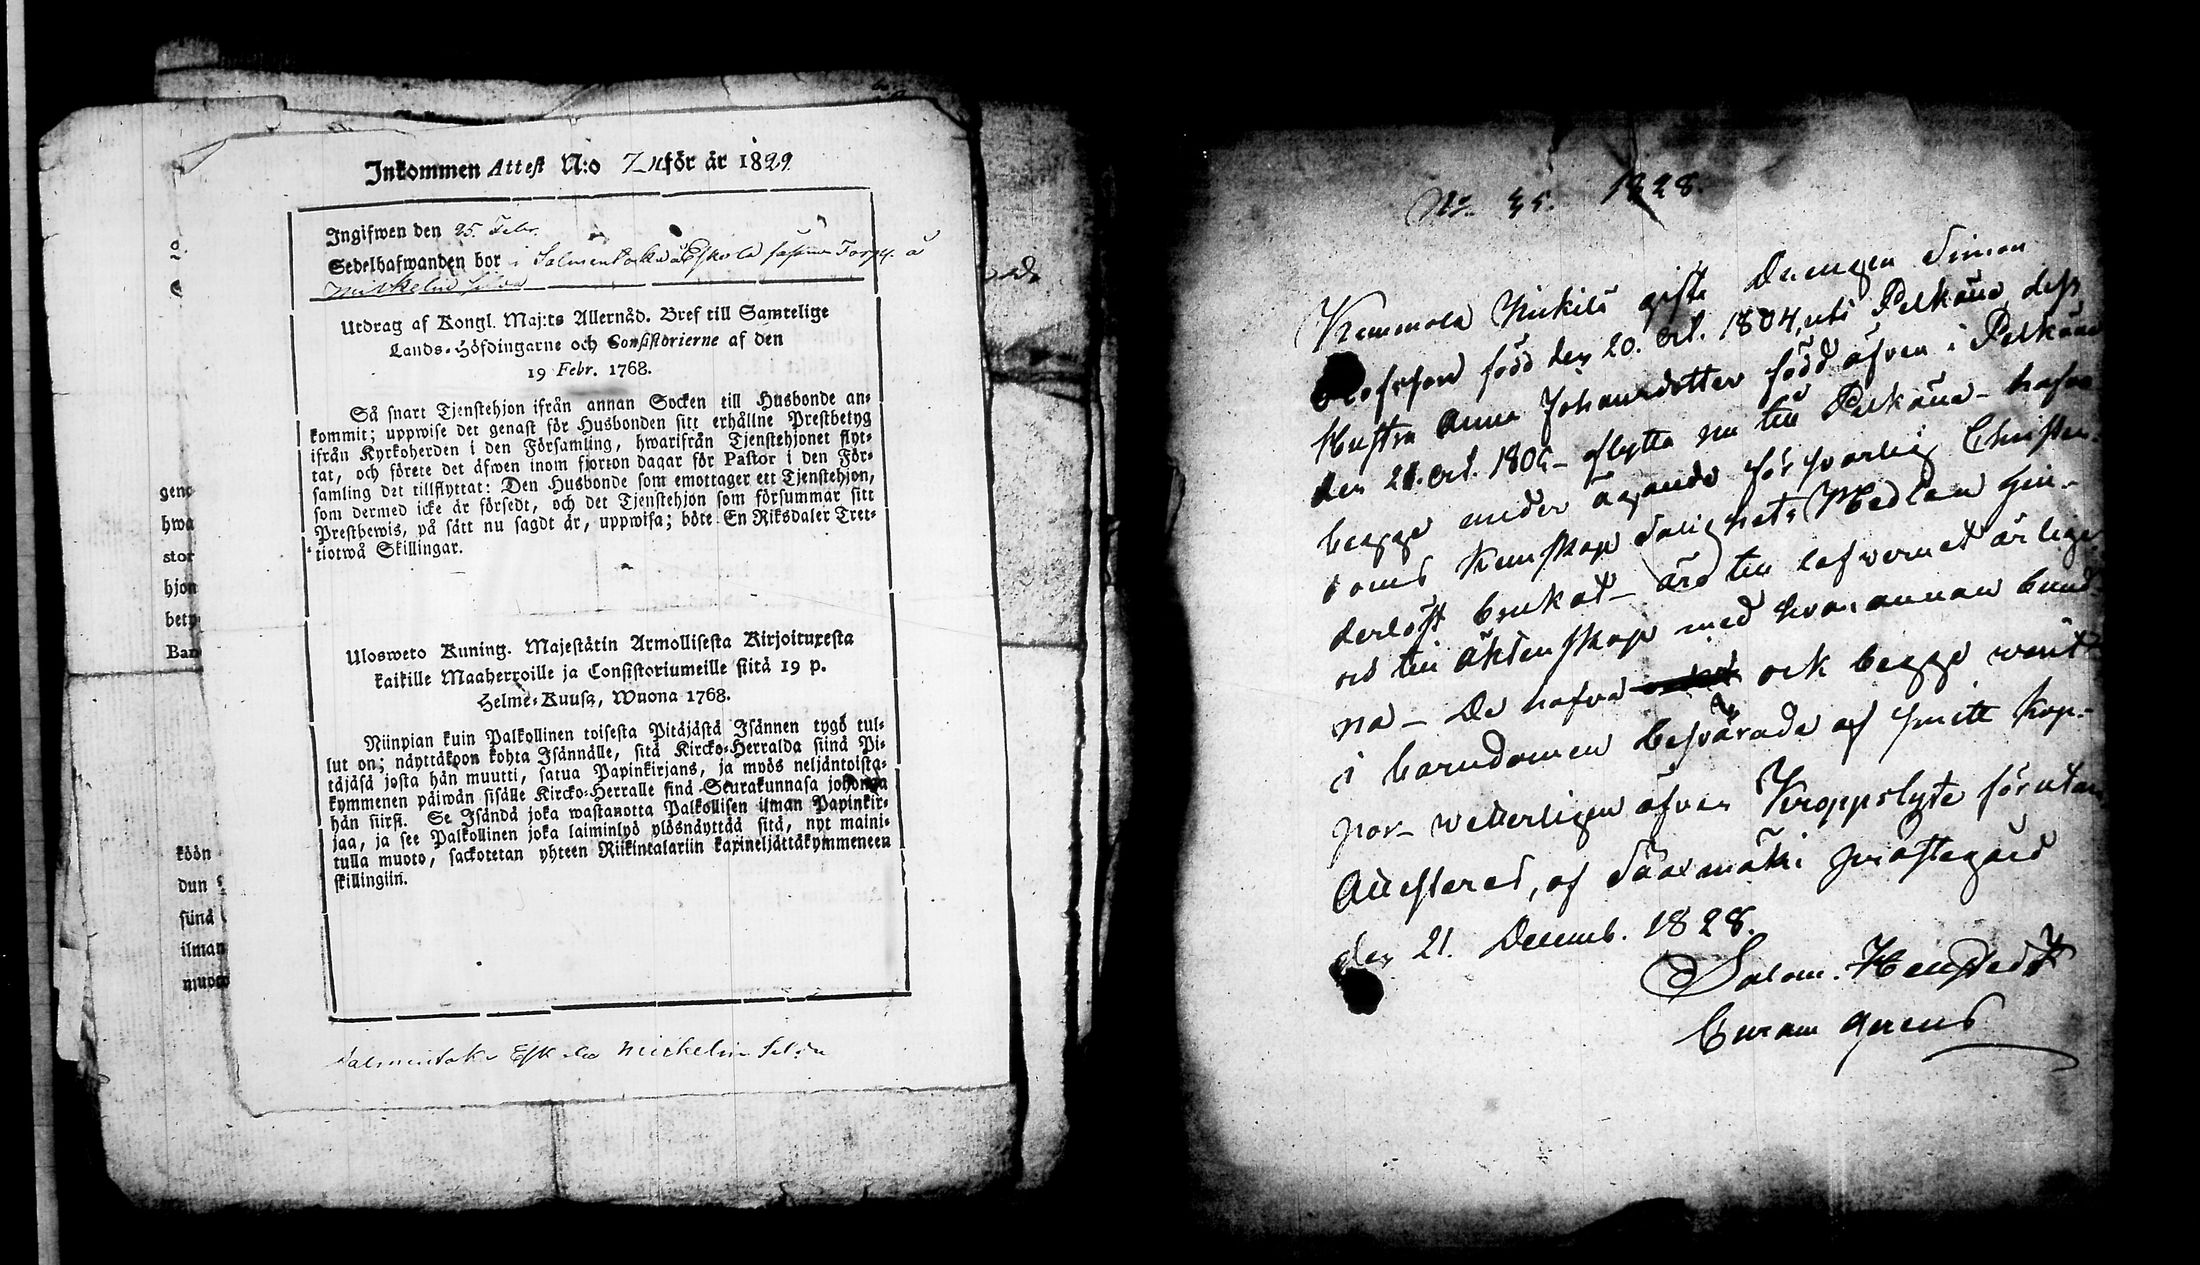 Inkommen Attest N:o 7 för år 1829
Ingifwen den 25. Febr.
Sedelhafwanden bor i Salmentaka Eskola
Mickelin
Utdrag af Kongl. Maj:ts Allernåd. Bref till Samtelige
Lands-Höfdingarne och Consistorierne af den
19 Febr. 1768.
Så snart Tjenstehjon ifrån annan Socken till Husbonde an-
kommit; uppwise det genast för Husbonden sitt erhållne Prestbetyg
ifrån Kyrkoherden i den Församling, hwarifrån Tjenstehjonet flyt-
tat, och förete det äfwen inom fjorton dagar för Pastor i den För-
samling det tillflyttat: Den Husbonde som emottager ett Tjenstehjon,
som dermed icke är försedt, och det Tjenstehjon som försummar sitt
Prestbewis, på sätt nu sagdt är, uppwisa; böte En Riksdaler Tret-
tiotwå Skillingar.
Ulosweto Kuning. Majestätin Armollisesta Kirjoituxesta
kaikille Maaherroille ja Consistoriumeille siitä 19 p.
Helme-Kuusa, Wuona 1768.
Niinpian kuin Palkollinen toisesta Pitäjästä Isännen tygö tul-
lut on; näyttäköön kohta Isännälle, sitä Kircko-Herralda siinä Pi-
täjäsä josta hän muutti, satua Papinkirjans, ja myös neljäntoista-
kymmenen päiwän sisälle Kircko-Herralle sinä Seurakunnasa johonga
hän siirsi. Se Isändä joka wastanotta Palkollisen ilman Papinkir-
jaa, ja see Palkollinen joka laiminlyö ylösnäyttää sitä, nyt maini-
tulla muoto, sackotetan yhteen Riikintalariin kaxineljättäkymmeneen
skillingiin.
Salmentaka Eskola Mickelin
geno
hwa
stor
hjon
bety
Ban
köön
dun
siinä
ilman
muoto
No. 35. 1828.
Kemmola Mickils gifte Drengen Simon
Olofsson född den 20. Oct. 1804, uti Pelkäne, dess
Hustru Anna Johansdotter född äfven i Pelkäne
den 21. Oct. 1806 – flytta nu till Pelkäne – hafva
begge under ägande försvarlig Christen-
doms Kunskap Salighets Medlen hin-
derlöst brukat – äro till lefvernet ärlige
och till äktenskap med hvarannan bund-
na – De hafva och begge varit
i barndomen besvärade af smitt kop-
por – vetterligen äfven Kroppslyte förutan
Attesteras, af Sääxmäki prästegård
den 21. Decemb. 1828.
Salom. Henstedt
Curam gerens